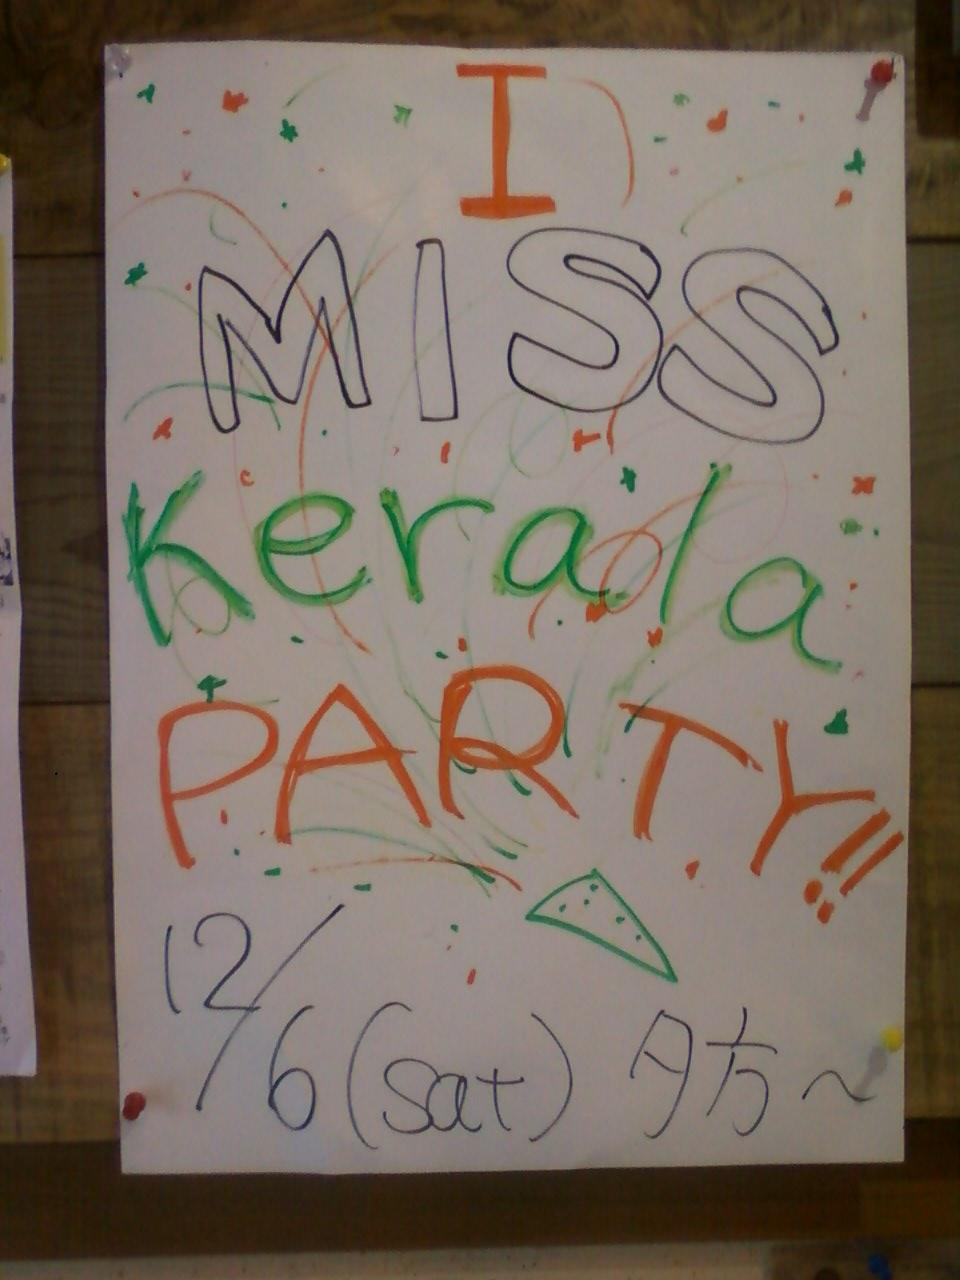 I
MISS
Kerala
PARTY!!
12/6(sat) 夕方~